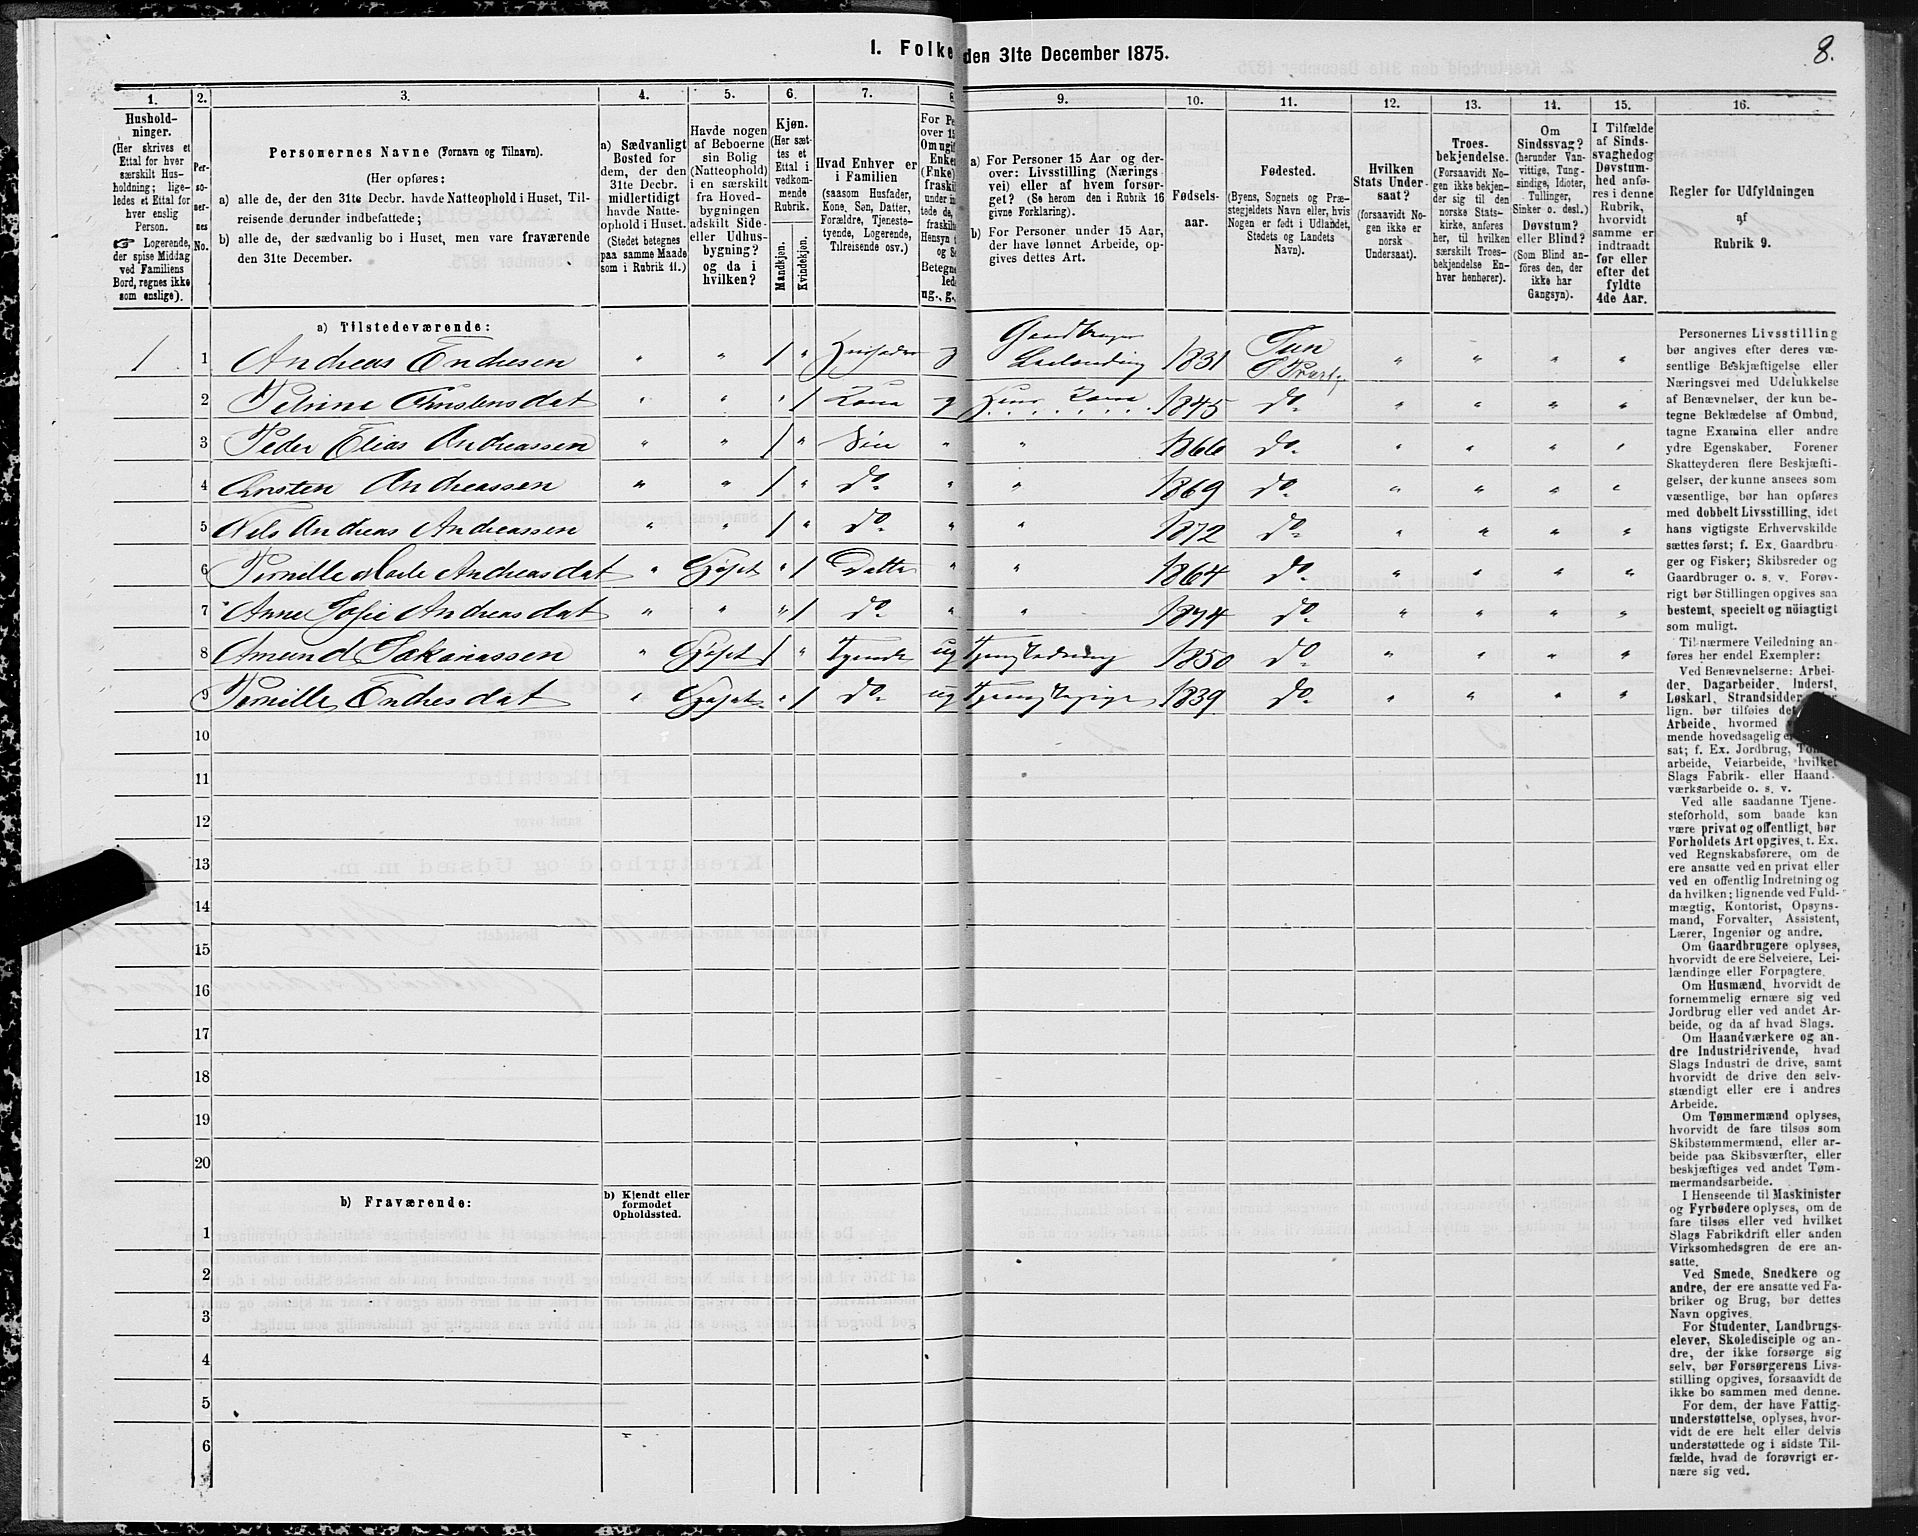 8.
1. Folke den 31te December 1875.
1. 2. 3. 4. 5. 6. 7. 8 9. 10. 11. 12. 13. 14. 15. 16.
Hushold-
ninger.
(Her skrives et
Ettal for hver
særskilt Hus-
holdning; lige-
ledes et Ettal for
hver enslig
Person.
☞ Logerende,
der spise Middag
ved Familiens
Bord, regnes ikke
som enslige).
Per-
so-
ner-
nes
No.
Personernes Navne (Fornavn og Tilnavn).
(Her opføres:
a) alle de, der den 31te Decbr. havde Natteophold i Huset, Til-
reisende derunder indbefattede;
b) alle de, der sædvanlig bo i Huset, men vare fraværende
den 31te December.
a) Sædvanligt
Bosted for
dem, der den
31te Decbr.
midlertidigt
havde Natte-
ophold i Huset.
(Stedet betegnes
paa samme Maade
som i Rubrik 11.)
Havde nogen
af Beboerne
sin Bolig
(Natteophold)
i en særskilt
fra Hoved-
bygningen
adskilt Side-
eller Udhus-
bygning?
og da i
hvilken?
Kjøn.
(Her sæt-
tes et
Ettal i
vedkom-
mende
Rubrik.
Mandkjøn.
Kvindekjøn.
Hvad Enhver er
i Familien
(saasom Husfader,
Kone, Søn, Datter,
Forældre, Tjeneste-
tyende, Logerende,
Tilreisende osv.)
For Pe
over 15
Om ugif
Enke
(Enke)
fraskil
under in
tede de,
fraskil
Hensyn
og Se
Betegne
led
ug., g.,
a) For Personer 15 Aar og der-
over: Livsstilling (Nærings
vei) eller af hvem forsør-
get? (Se herom den i Rubrik 16
givne Forklaring).
b) For Personer under 15 Aar,
der have lønnet Arbeide, op-
gives dettes Art.
Fødsels-
aar.
Fødested.
(Byens, Sognets og Præ-
stegjeldets Navn eller, hvis
Nogen er født i Udlandet,
Stedets og Landets
Navn).
Hvilken
Stats Under-
saat?
(forsaavidt No-
gen ikke er
norsk
Undersaat).
Troes-
bekjendelse.
(Forsaavidt No-
gen ikke bekjen-
der sig til den
norske Stats-
kirke, anføres
her, til hvilken
særskilt Troes-
bekjendelse En-
hver henhører).
Om
Sindssvag?
(herunder Van-
vittige, Tung-
sindige, Idioter,
Tullinger,
Sinker o. desl.)
Døvstum?
eller Blind?
(Som Blind an-
føres den, der
ikke har
Gangsyn).
I Tilfælde
af Sinds-
svaghed og
Døvstum-
hed anfø-
res i denne
Rubrik,
hvorvidt
samme er
indtraadt
før eller
efter det
fyldte
4de Aar.
Regler for Udfyldningen
af
Rubrik 9.
a) Tilstedeværende:
1 1 Andreas Endresen " " 1 " Husfader g Gaardbruger Leilending 1831 Tun P Præstgj " " " "
2 Petrine Christensdat " " " 1 Kone g Huus Kone 1845 do " " " "
3 Peder Elias Andreassen " " 1 " Søn " " 1866 do " " " "
4 Christen Andreassen " " 1 " do " " 1869 do " " " "
5 Nils Andreas Andreassen " " 1 " do " " 1872 do " " " "
6 Pernille Andreasdat " " 1 Datter " " 1864 do " " " "
7 Anne Sofie Andreasdat " " " 1 do " " 1874 do " " " "
8 Amund Sakariassen " 1 " Tyende ug 1850 do " " " "
9 Pernille Endresdat " " 1 do ug 1839 do " " " "
10
11
12
13
14
15
16
17
18
19
20
b) Fraværende: b) Kjendt eller
formodet
Opholdssted.
1
2
3
4
5
6
Personernes Livsstilling
bør angives efter deres væ-
sentlige Beskjæftigelse eller
Næringsvei med Udelukkelse
af Benævnelser, der kun be-
tegne Beklædelse af Ombud,
tagne Examina eller andre
ydre Egenskaber. Forener
Skatteyderen flere Beskjæfti-
gelser, der kunne ansees som
væsentlige, bør han opføres
med dobbelt Livsstilling, idet
hans vigtigste Erhvervskilde
sættes først; f. Ex. Gaardbru-
ger og Fisker; Skibsreder og
Gaardbruger o. s. v. Forøv-
rigt bør Stillingen opgives saa
bestemt, specielt og nöiagtigt
som muligt.
Til nærmere Veiledning an-
føres her endel Exempler:
Ved Benævnelserne: Arbei-
der, Dagarbeider, Inderst,
Løskarl, Strandsidder
lign. bør tilføies de
Arbeide, hvormed
mende hovedsagelig
sat; f. Ex. Jordbrug, Tøm
arbeide, Veiarbeide, hvilket
Slags Fabrik- eller Haand-
værksarbeide o. s. v.
Ved alle saadanne Tjene-
steforhold, som baade kan
være privat og offentligt, bør
Forholdets Art opgives, t. Ex.
ved Regnskabsførere, om de
ere ansatte ved en privat eller
ved en offentlig Indretning og
da hvilken; lignende ved Fuld-
mægtig, Kontorist, Opsyns-
mand, Forvalter, Assistent,
Lærer, Ingeniør og andre.
Om Gaardbrugere oplyses,
hvorvidt de ere Selveiere, Lei-
lændinge eller Forpagtere.
Om Husmænd, hvorvidt de
fornemmelig ernære sig ved
Jordbrug eller ved andet Ar-
beide, og da af hvad Slags.
Om Haandværkere og an-
dre Industridrivende, hvad
Slags Industri de drive, samt
hvorvidt de drive den selv-
stændigt eller ere i andres
Arbeide.
Om Tømmermænd oplyses,
hvorvidt de fare tilsøs som
Skibstømmermænd, eller ar-
beide paa Skibsværfter, eller
beskjæftiges ved andet Tøm-
mermandsarbeide.
I Henseende til Maskinister
og Fyrbødere oplyses, om de
fare tilsøs eller ved hvilket
Slags Fabrikdrift eller anden
Virksomhedsgren de ere an-
satte.
Ved Smede, Snedkere og
andre, der ere ansatte ved Fa-
briker og Brug, bør dettes
Navn opgives.
For Studenter, Landbrugs-
elever, Skoledisciple og an-
dre, der ikke forsørge sig
selv, bør Forsørgerens Livs-
stilling opgives, forsaavidt de
ikke bo sammen med denne.
For dem, der have Fattig-
understøttelse, oplyses, hvor-
vidt de ere helt eller delvis
understøttede og i sidste Til-
fælde, hvad de forøvrigt er-
nære sig ved.